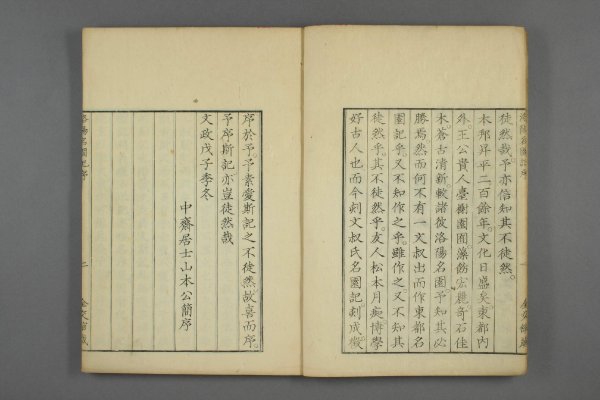 徒然哉予亦信知其不徒然
本邦昇平二百餘年文化日盛矣東都內
外王公貴人臺榭園囿藻飾宏麗奇石佳
木蒼古清新較諸彼洛陽名園予知其必
勝焉然而何不有一文叔出而作東都名
園記乎又不知作之乎雖作之又不知其
徒然乎其不徒然乎友人松本月痴博學
好古人也而今刻文叔氏名園記刻成徵
序於予予素愛斯記之不徒然故喜而序
予序斯記亦豈徒然哉
文政戊子季冬
中齋居士山本公簡序
洛陽名園記序
二